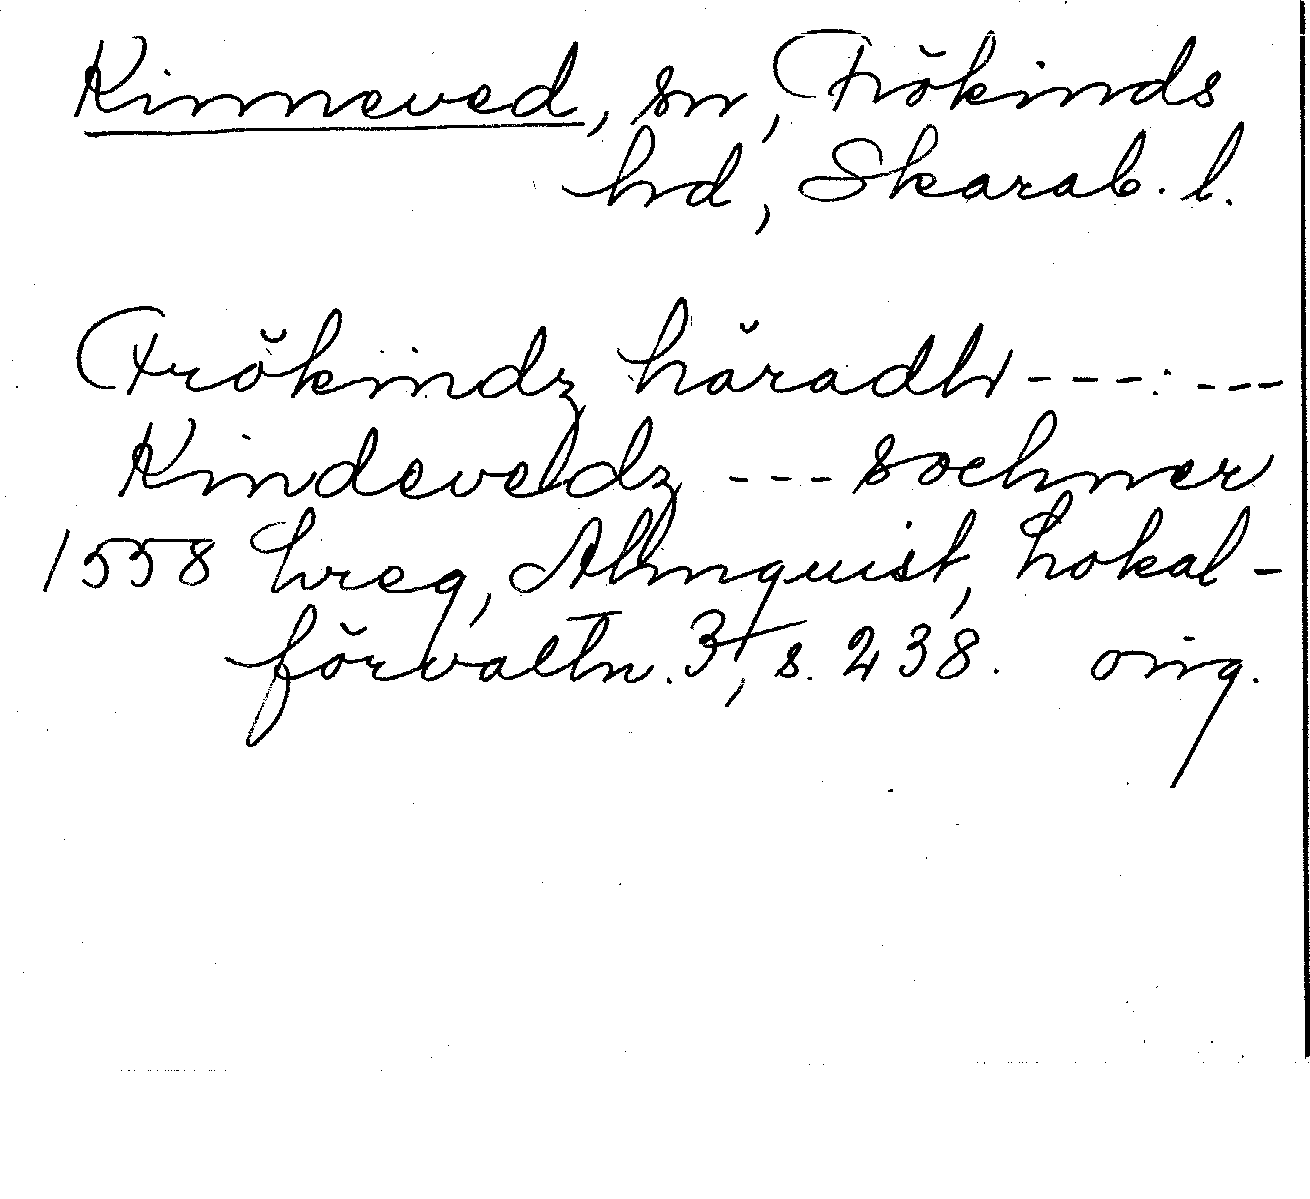 Kinneved, sn, Frökinds
hd, Skarab. l.
Frökindz häradh ---:---
Kindeveldz --- sochner
1558 hreg, Almquist, Lokal-
förvaltn. 3, s. 238. oing.